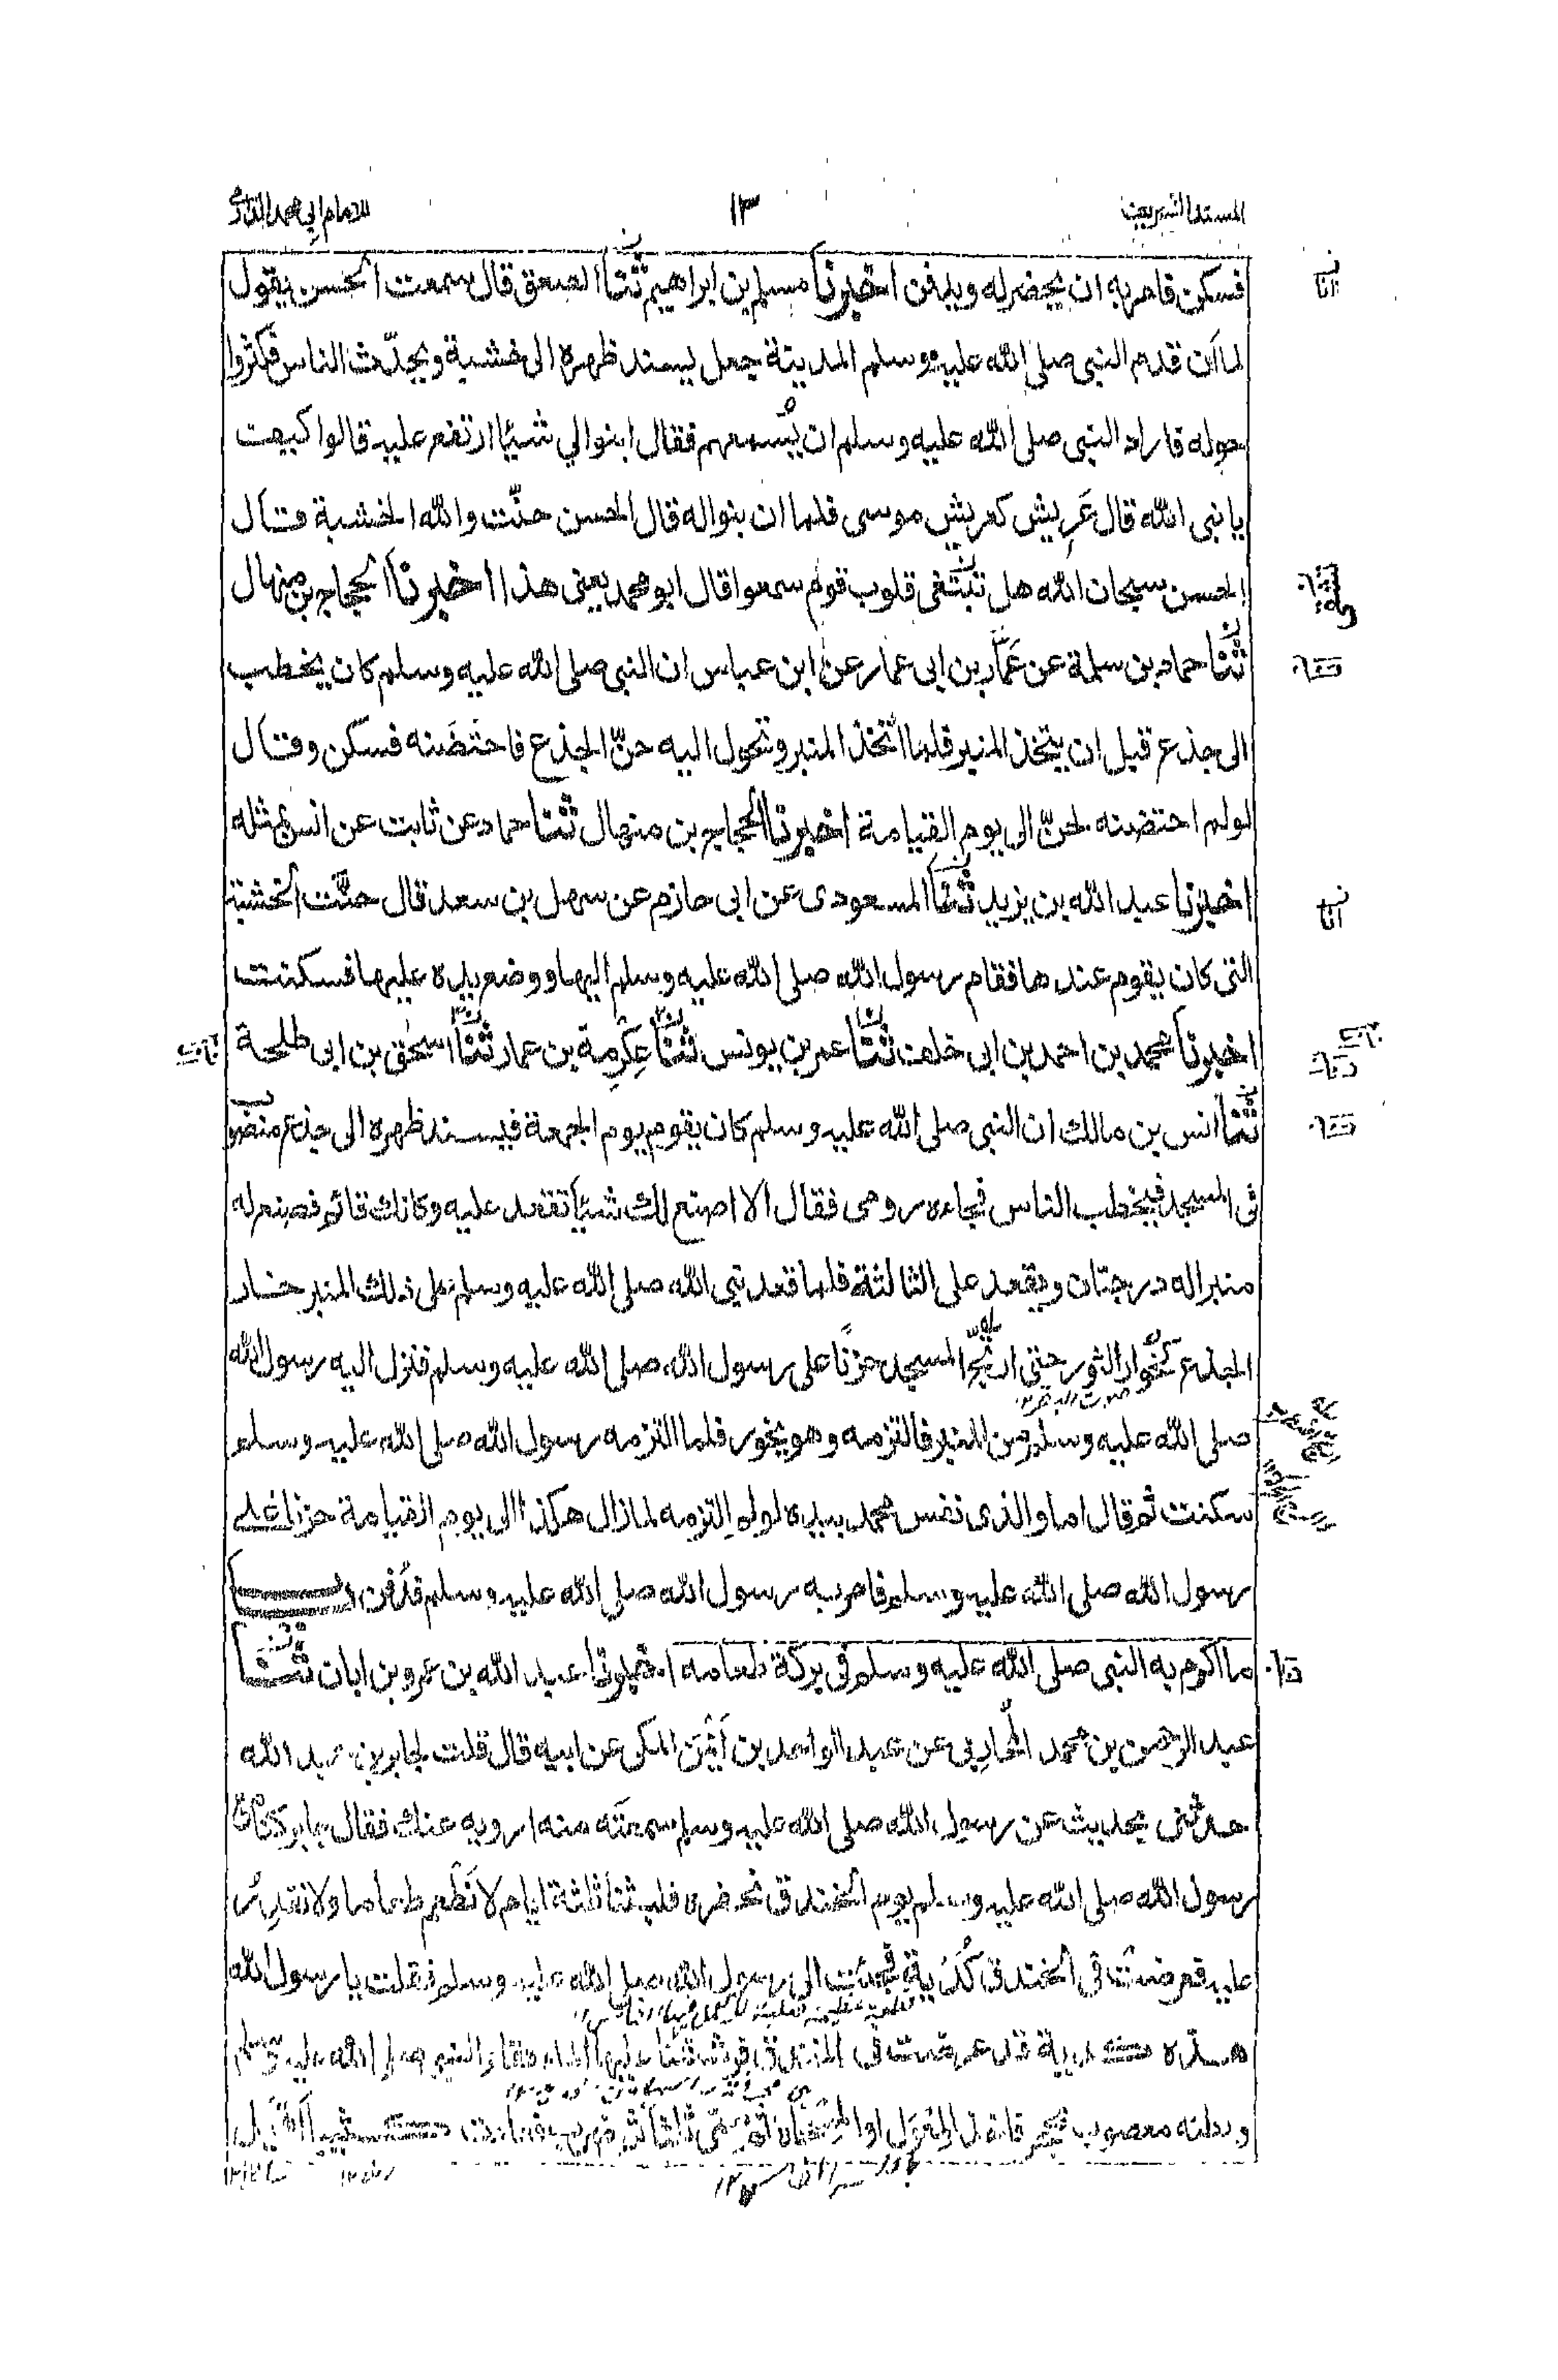 المسند الشريف ١٣ للامام ابي محمد الدارمي
فسكن فامر به ان يحفر له ويدفن اخبرنا مسلم بن ابراهيم ثنا الصعق قال سمعت الحسن يقول
لما ان قدم النبي صلى الله عليه وسلم المدينة جعل يسند ظهره الى خشبة ويحدّث الناس فكثروا
حوله فاراد النبي صلى الله عليه وسلم ان يُسمعهم فقال ابنوا لي شيئا ارتفع عليه قالوا كيف
يا نبي الله قال عَرِيش كعريش موسى فلما ان بنوا له قال الحسن حنّت والله الخشبة قال
الحسن سبحان الله هل تبتغى قلوب قوم سمعوا قال ابو محمد يعني هذا اخبرنا الحجاج بن منهال
ثنا حماد بن سلمة عن عَمَّار بن ابي عمار عن ابن عباس ان النبي صلى الله عليه وسلم كان يخطب
الى جذع قبل ان يتخذ المنبر فلما اتخذ المنبر وتحول اليه حنّ الجذع فاحتضنه فسكن وقال
لو لم احتضنه لحنّ الى يوم القيامة اخبرنا الحجاج بن منهال ثنا حماد عن ثابت عن انس بمثله
اخبرنا عبد الله بن يزيد ثنا المسعودي عن ابي حازم عن سهل بن سعد قال حنّت الخشبة
التي كان يقوم عندها فقام رسول الله صلى الله عليه وسلم اليها ووضع يده عليها فسكنت
اخبرنا محمد بن احمد بن ابي خلف ثنا عمر بن يونس ثنا عِكْرِمة بن عمار ثنا اسحق بن ابي طلحة
ثنا انس بن مالك ان النبي صلى الله عليه وسلم كان يقوم يوم الجمعة فيسند ظهره الى جذع منصوب
في المسجد فيخطب الناس فجاءه رومي فقال الا اصنع لك شيئا تقعد عليه وكانك قائم فصنع له
منبرا له درجتان ويقعد على الثالثة فلما قعد نبي الله صلى الله عليه وسلم على ذلك المنبر خار
الجذع كخُوار الثور حتى ارتج المسجد حزنًا على رسول الله صلى الله عليه وسلم فنزل اليه رسول الله
صلى الله عليه وسلم من المنبر فالتزمه وهو يخور فلما التزمه رسول الله صلى الله عليه وسلم
سكنت ثم قال اما والذي نفس محمد بيده لو لم التزمه لما زال هكذا الى يوم القيامة حزنا على
رسول الله صلى الله عليه وسلم فامر به رسول الله صلى الله عليه وسلم فدُفن باب
ما اكرم به النبي صلى الله عليه وسلم في بركة طعامه اخبرنا عبد الله بن عمرو بن ابان ثنا
عبد الرحمن بن محمد المُحارِبي عن عبد الواحد بن اَيْمَن المكي عن ابيه قال قلت لجابر بن عبد الله
حدثني بحديث عن رسول الله صلى الله عليه وسلم سمعتَه منه ارويه عنك فقال جابر كنا مع
رسول الله صلى الله عليه وسلم يوم الخندق نحفره فلبثنا ثلثة ايام لا نَطْعم طعاما ولا نقدر
عليه فعرضتْ في الخندق كُدْية فجئت الى رسول الله صلى الله عليه وسلم فقلت يا رسول الله
هذه كدية قد عرضت في الخندق فرششنا عليها الماء فقام النبي صلى الله عليه وسلم
وبطنه معصوب بحجر فاخذ المِعْوَل او المِسْحاة ثم سمّى ثلاثا ثم ضرب فعادت كثيبا اَهْيَل